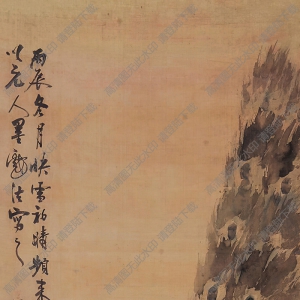 丙辰冬月映雪初晴頻来
以元人墨戲法写之